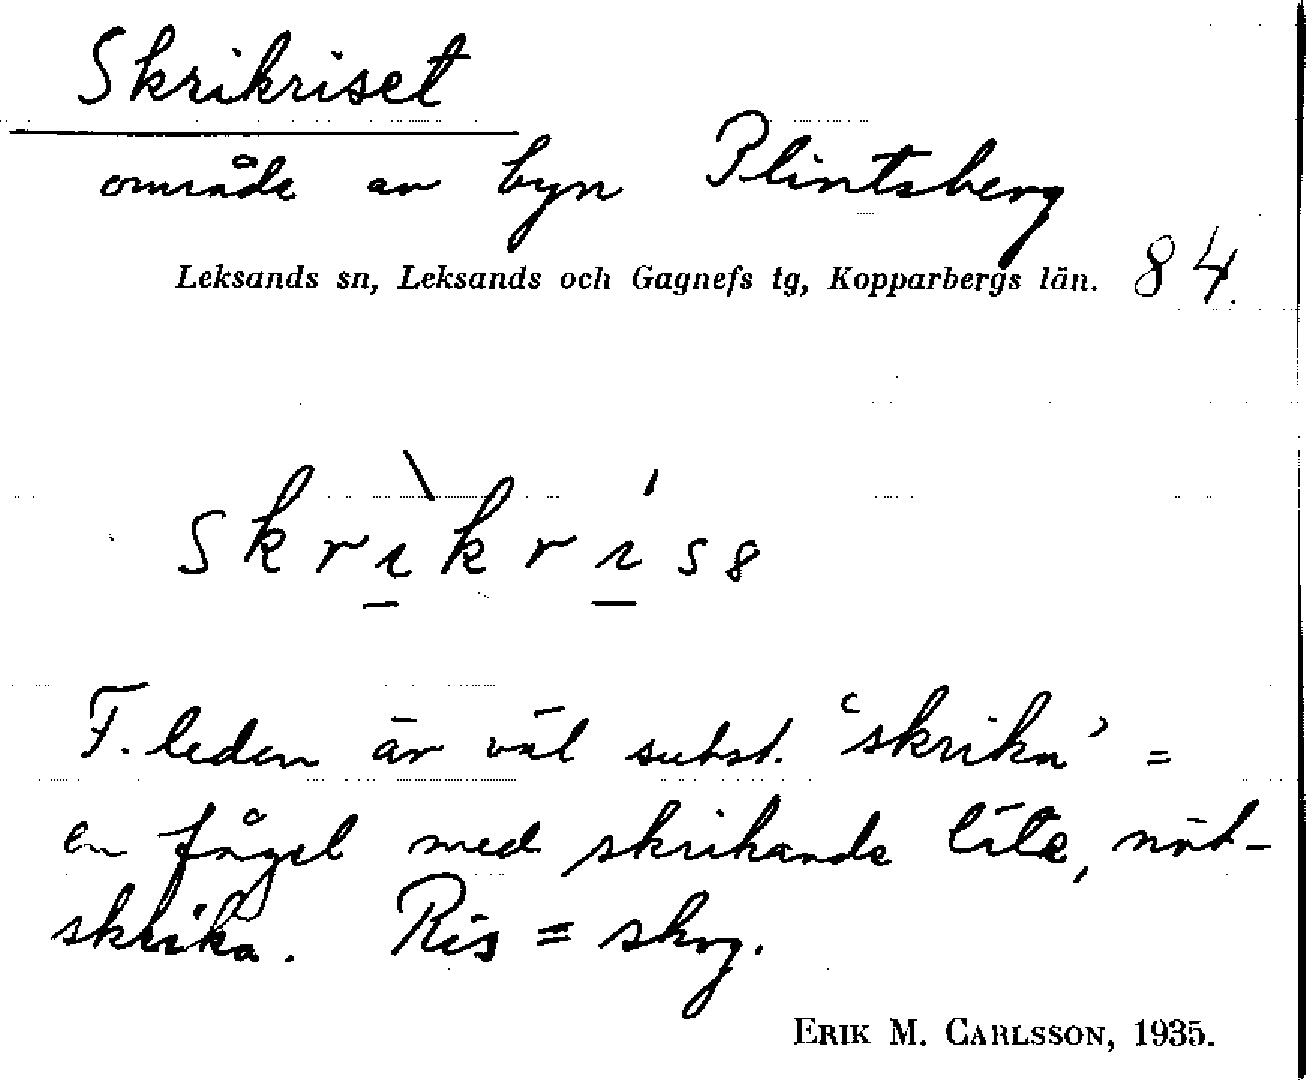 Skrikriset
område av byn Plintsberg
Leksands sn, Leksands och Gagnefs tg, Kopparbergs län. 84.
skrìkríss
F. leden är väl subst. 'skrika' =
en fågel med skrikande läte, nöt-
skrika. Ris = skog.
ERIK M. CARLSSON, 1935.